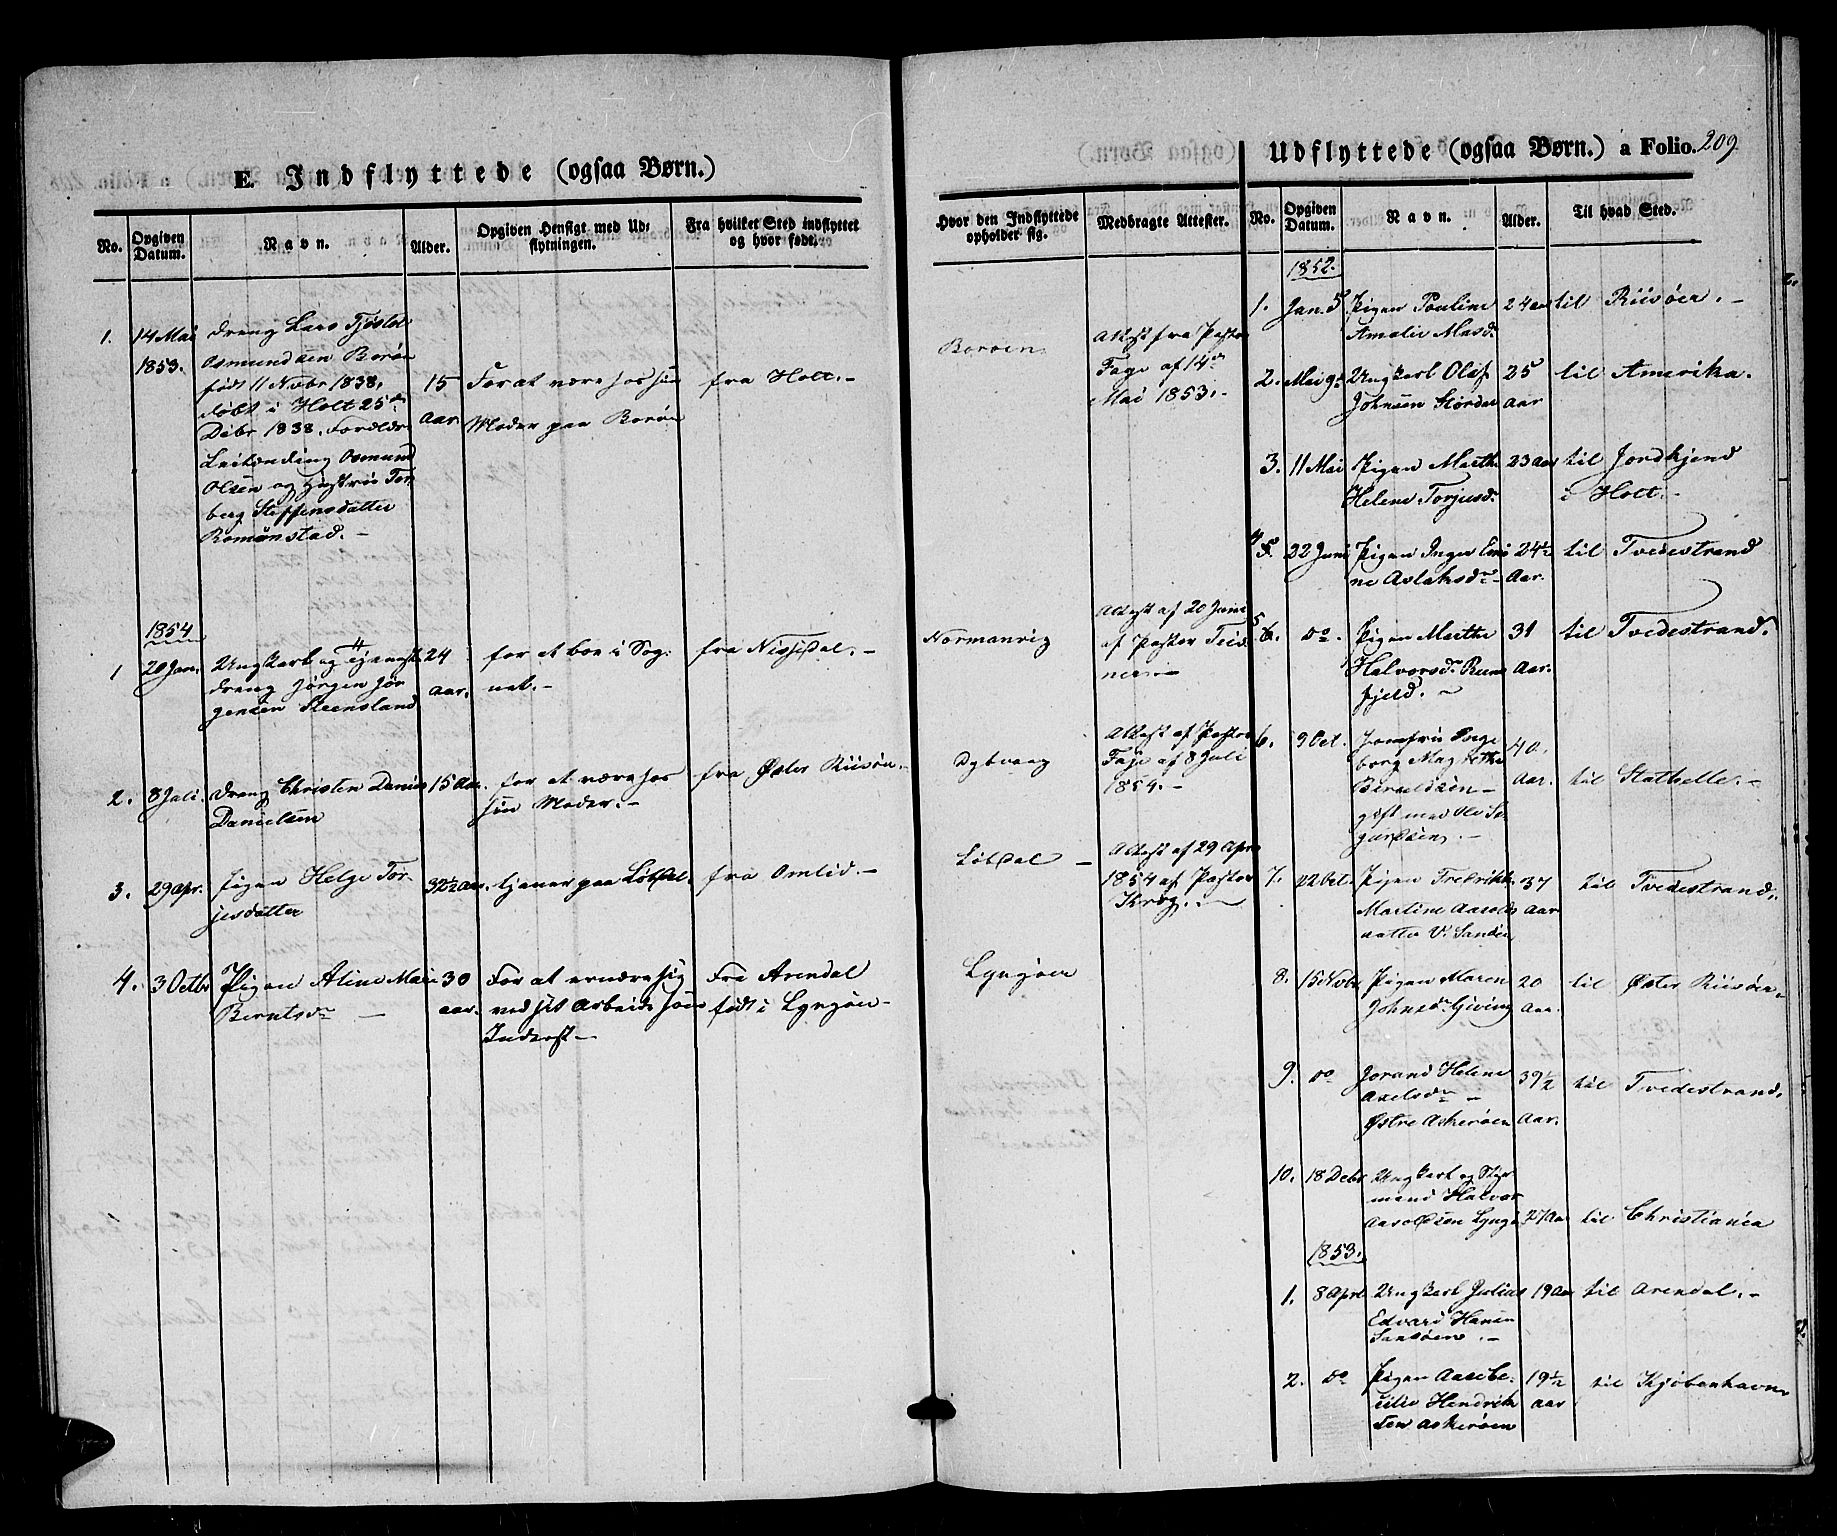 E. Indflyttede (ogsaa Børn.)
No.
Opgiven Datum.
Navn.
Alder.
Opgiven Hensigt med Ud-
flytningen.
Fra hvilket Sted indflyttet
og hvor født.
Hvor den Indflyttede
opholder sig.
Medbragte Attester.
1.
14 Mai
1853.
dreng Lars Tjøstol
Osmundsen Borøe
født 11 Novbr 1838,
døbt i Holt 25de
Debr 1838. Forældre
Leilænding Osmund
Olsen og Hustrue Tor-
berg Steffensdatter
Romønstad. -
15
aar
For at være hos sin
Moder paa Borøe
fra Holt. -
Borøen
Attest fra Pastor
Faye af 14de
Mai 1853. -
1854
1
20 Jan.
Ungkarl og
dreng Jørgen Jør
gensen Steensland
24
aar.
for at boe i Sog-
net. -
fra Nissedal. -
Normanvig
Attest af 20 Juni
af Pastor
2.
8 Juli.
dreng Christen Danius
Danielsen
15 Aar.
for at være hos
sin Moder. -
fra Øster Riisøer. -
Dybvaag
Attest af Pastor
Faye af 8 Juli
1854. -
3.
29 Apr.
Pigen Helge Tor-
jesdatter
32½ Aar.
tjener paa Løvdal.
fra Omlid. -
Løvdal -
Attest af 29 Apr
1854 af Pastor
Krog. -
4.
3 Octbr
Pigen Aline Marie
Berntsdr -
30
aar.
For at ernære sig
ved sit Arbeide som
Inderst -
Fra Arendal
født i Lyngøer -
Lyngøer
Udflyttede (ogsaa Børn.) a Folio. 209
No.
Opgiven Datum.
Navn.
Alder.
Til hvad Sted.
1852.
1.
Jan. 5
Pigen Pauline
Amalie Masdr
24 aar
til Riisøer. -
2.
Mai 9
Ungkarl Olaf
Johnsen Stordal
25
aar
til Amerika.
3.
11 Mai
Pigen Marthe
Helene Torjusdr
23 Aar
til Jordkjend
i Holt. -
4
5.
22 Juni
Pigen Inger Emi
ne Aslaksdr -
24½
Aar.
til Tvedestrand
5
6.
do
Pigen Marthe
Halvorsdr
fjeld. -
31
Aar.
til Tvedestrand.
6.
9 Oct.
Jomfru Inge
borg Magrethe
gift med Ole
40
Aar.
til Stathelle. -
7.
22 Oct.
Pigen Fredrikke
Martine Aarolds
datter V. Sandøen
37
Aar
til Tvedestrand.
8.
15 Novbr
Pigen Maren
Johnsdr Giving
20
Aar.
til Øster Riisøer.
9.
do
Jorand Helene
Axelsdr -
Østre Askerøen
39½
Aar.
til Tvedestrand.
10.
18 Debr
Ungkarl og Styr
mand Halvor
Aaroldsen Lyngø
27 Aar
til Christiania
1853.
1.
8 Apr
Ungkarl Julius
Edvard Hansen
Sandøen. -
19 Aar
til Arendal. -
2.
do
Pigen Aase Ce-
cilie Hendrik
sen Askerøen
19½
aar
til Kjøbenhavn